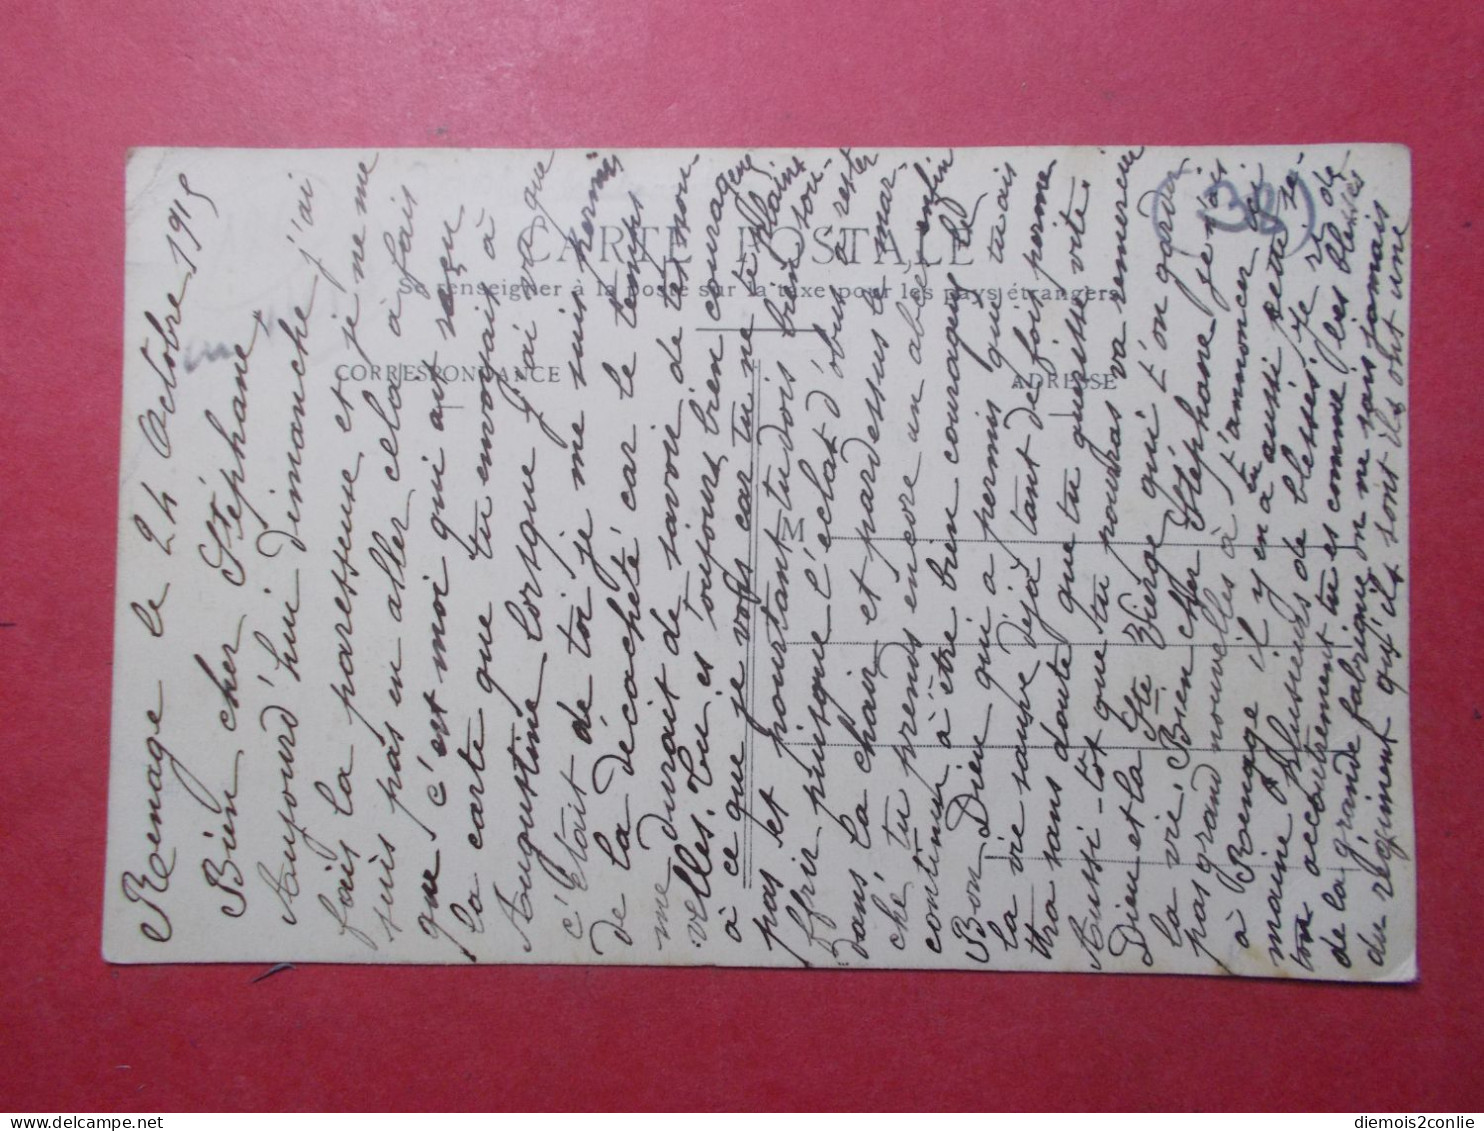 Renage le 24 Octobre 1915
Bien cher Stéphane
Aujourd'hui dimanche j'ai
fais la paresseuse et je ne me
suis pas en aller cela à fais
que c'est moi qui ait reçu
la carte que tu envoyait à
Augustine lorsque j'ai vu que
c'était de toi je me suis permis
de la décacheté car le temps
me durait de savoir de tes nou-
velles. Tu es toujours bien courageux
à ce que je vois car tu ne te plains
pas et pourtant tu dois bien sou-
ffrir puisque l'éclat d'obus a rester
dans la chair et pardessus le mar-
ché tu prends encore un abcé enfin
continue à être bien courageux le
Bon Dieu qui a permis que tu ais
la vie sauve déjà tant de fois perme
ttra sans doute que tu guérisse vite.
Aussi-tôt que tu pourras va remercier
Dieu et la Ste Vierge qui t'on garder
la vie. Bien cher Stéphane je n'ais
pas grand nouvelles à t'annoncer
à Renage il y en a aussi cette se-
maine plusieurs de blessés je
autrement tu es comme les blessés
de la grande fabrique on ne sais jamais
du régiment qu'il sont ils ont une
CARTE POSTALE
Se renseigner à la poste sur la taxe pour les pays étrangers
CORRESPONDANCE
ADRESSE
M
38
diemois2conlie